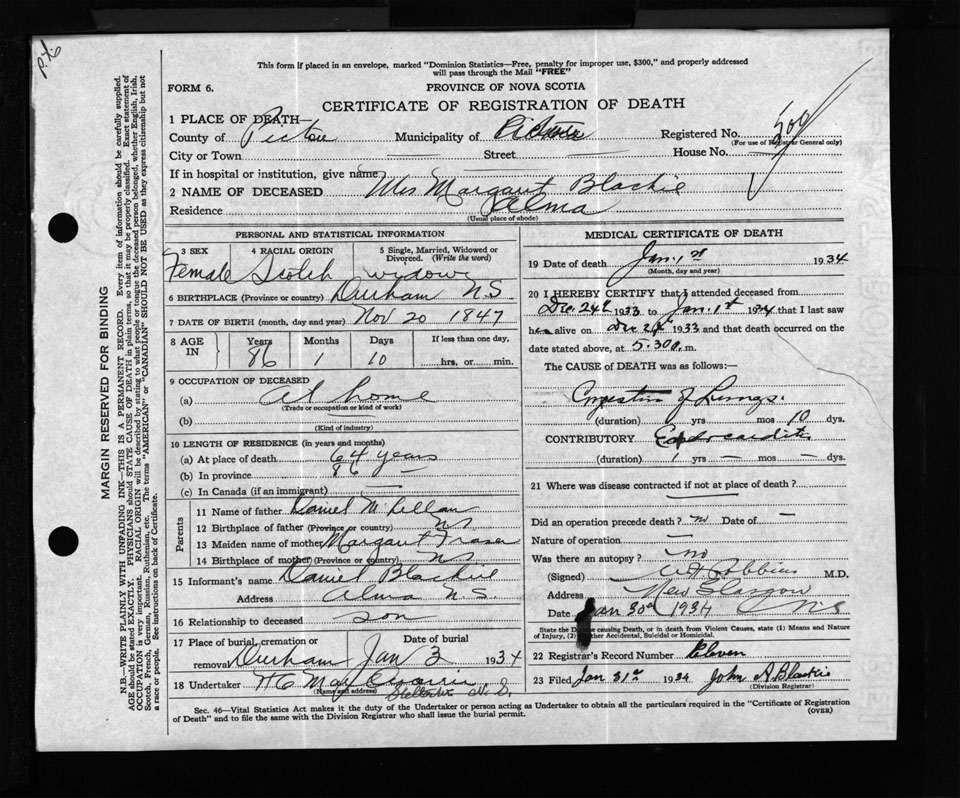 This form if placed in an envelope, marked "Dominion Statistics—Free, penalty for improper use, $300," and properly addressed
will pass through the Mail "FREE"
FORM 6.
PROVINCE OF NOVA SCOTIA
CERTIFICATE OF REGISTRATION OF DEATH
1 PLACE OF DEATH—
County of Pictou Municipality of Pictou Registered No. 500
(For use of Registrar General only)
City or Town Street House No.
If in hospital or institution, give name
2 NAME OF DECEASED Mrs Margaret Blackie
Residence Alma
(Usual place of abode)
PERSONAL AND STATISTICAL INFORMATION
3 SEX 4 RACIAL ORIGIN 5 Single, Married, Widowed or
Divorced. (Write the word)
Female Scotch widow
6 BIRTHPLACE (Province or country) Durham N.S.
7 DATE OF BIRTH (month, day and year) Nov 20 1847
8 AGE IN Years Months Days If less than one day,
86 1 10 hrs. or min.
9 OCCUPATION OF DECEASED
(a) At home
(Trade or occupation or kind of work)
(b)
(Kind of industry)
10 LENGTH OF RESIDENCE (in years and months)
(a) At place of death 64 years
(b) In province 86 —
(c) In Canada (if an immigrant) —
Parents
11 Name of father Daniel McLellan
12 Birthplace of father (Province or country) NS
13 Maiden name of mother Margaret Fraser
14 Birthplace of mother (Province or country) NS
15 Informant's name Daniel Blackie
Address Alma N.S.
16 Relationship to deceased son
17 Place of burial, cremation or Date of burial
removal Durham Jan 3 1934
18 Undertaker H C
(Name and address)
MEDICAL CERTIFICATE OF DEATH
19 Date of death Jan. 1st 1934
(Month, day and year)
20 I HEREBY CERTIFY that I attended deceased from
Dec 24th 1933 to Jan. 1st 1934 that I last saw
her alive on Dec 24th 1933 and that death occurred on the
date stated above, at 5.30a. m.
The CAUSE of DEATH was as follows:—
Congestion of Lungs.
(duration) yrs — mos 10 dys.
CONTRIBUTORY Endocarditis
(duration) 1 yrs — mos — dys.
21 Where was disease contracted if not at place of death?
Did an operation precede death? no Date of —
Nature of operation —
Was there an autopsy? no
(Signed) M.D.
Address New Glasgow
Date Jan 30th 1934 N.S
State the Disease causing Death, or in death from Violent Causes, state (1) Means and Nature
of Injury, (2) whether Accidental, Suicidal or Homicidal.
22 Registrar's Record Number Eleven
23 Filed Jan 31st 1934 John A. Blackie
(Division Registrar)
Sec. 46—Vital Statistics Act makes it the duty of the Undertaker or person acting as Undertaker to obtain all the particulars required in the "Certificate of Registration
of Death" and to file the same with the Division Registrar who shall issue the burial permit.
(OVER)
MARGIN RESERVED FOR BINDING
N.B.—WRITE PLAINLY WITH UNFADING INK—THIS IS A PERMANENT RECORD. Every item of information should be carefully supplied.
AGE should be stated EXACTLY. PHYSICIANS should STATE CAUSE OF DEATH in plain terms, so that it may be properly classified. Exact statement of
OCCUPATION is very important. RACIAL ORIGIN will be described by stating to what people or tongue the deceased person belonged, whether English, Irish,
Scotch, French, German, Russian, Ruthenian, etc. The terms "AMERICAN" or "CANADIAN" SHOULD NOT BE USED as they express citizenship but not
a race or people. See instructions on back of Certificate.